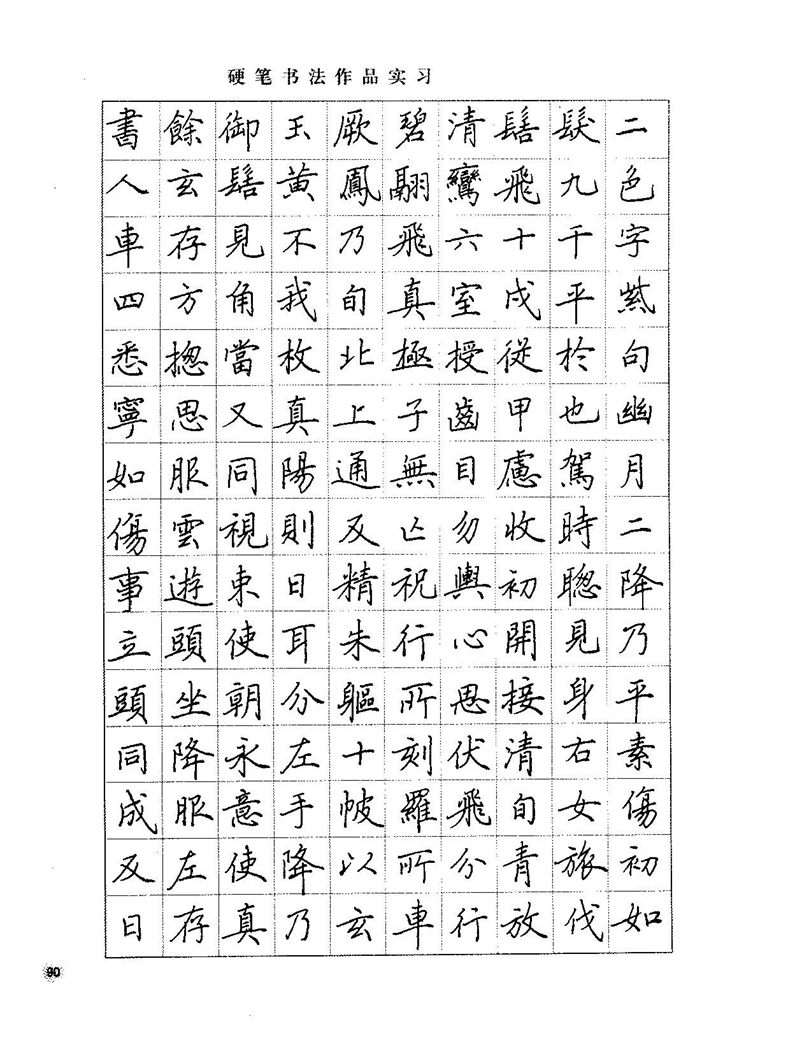 硬笔书法作品实习
書餘御玉厥碧清髻髮二
人玄髻黄鳳翮鸞飛九色
車存見不乃飛六十千字
四方角我旬真室戌平紫
悉揔當枚北極授從於句
寧思又真上子齒甲也幽
如服同陽通無目慮駕月
傷雲視則及亡勿收時二
事遊東日精祝輿初聰降
立頭使耳朱行心開見乃
頭坐朝分軀所思接身平
同降永左十刻伏清右素
成服意手帔羅飛旬女傷
及左使降以所分青旅初
日存真乃玄車行放伐如
90